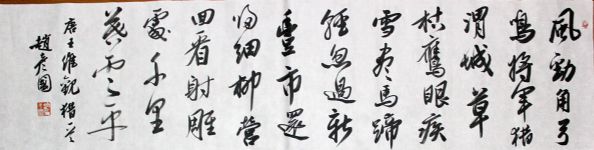 風勁角弓
鳴將軍猎
渭城草
枯鷹眼疾
雪尽馬蹄
輕忽過新
豊市還
归細柳營
回看射雕
處千里
暮雲平
唐王維觀猎
趙彦國